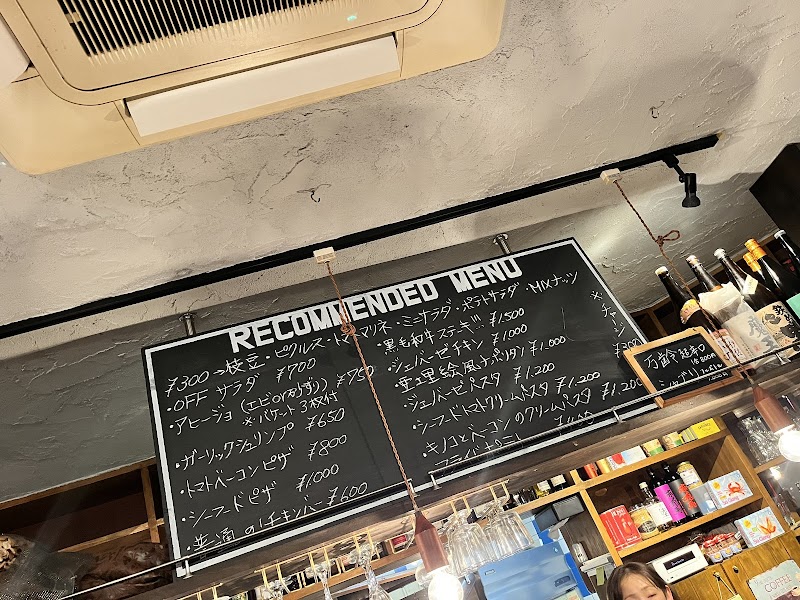 RECOMMENDED MENU
¥300→枝豆・ピクルス・トマトマリネ・ミニサラダ・ポテトサラダ・MIXナッツ
・OFF サラダ ¥700
・アヒージョ(エビorイカ) ¥750
※バケット3枚付
・ガーリックシュリンプ ¥650
・トマトベーコンピザ ¥800
・シーフードピザ ¥1,000
・普通のチキンバー ¥600
・黒毛和牛ステーキ!!! ¥1,500
・ジェノバーゼチキン ¥1,000
ナポリタン ¥1,000
・ジェノバーゼパスタ ¥1,200
・シーフードトマトクリームパスタ ¥1,200
・キノコとベーコンのクリームパスタ ¥1,200
※チャージ
万齢 超辛口
1合 800円
COFFEE